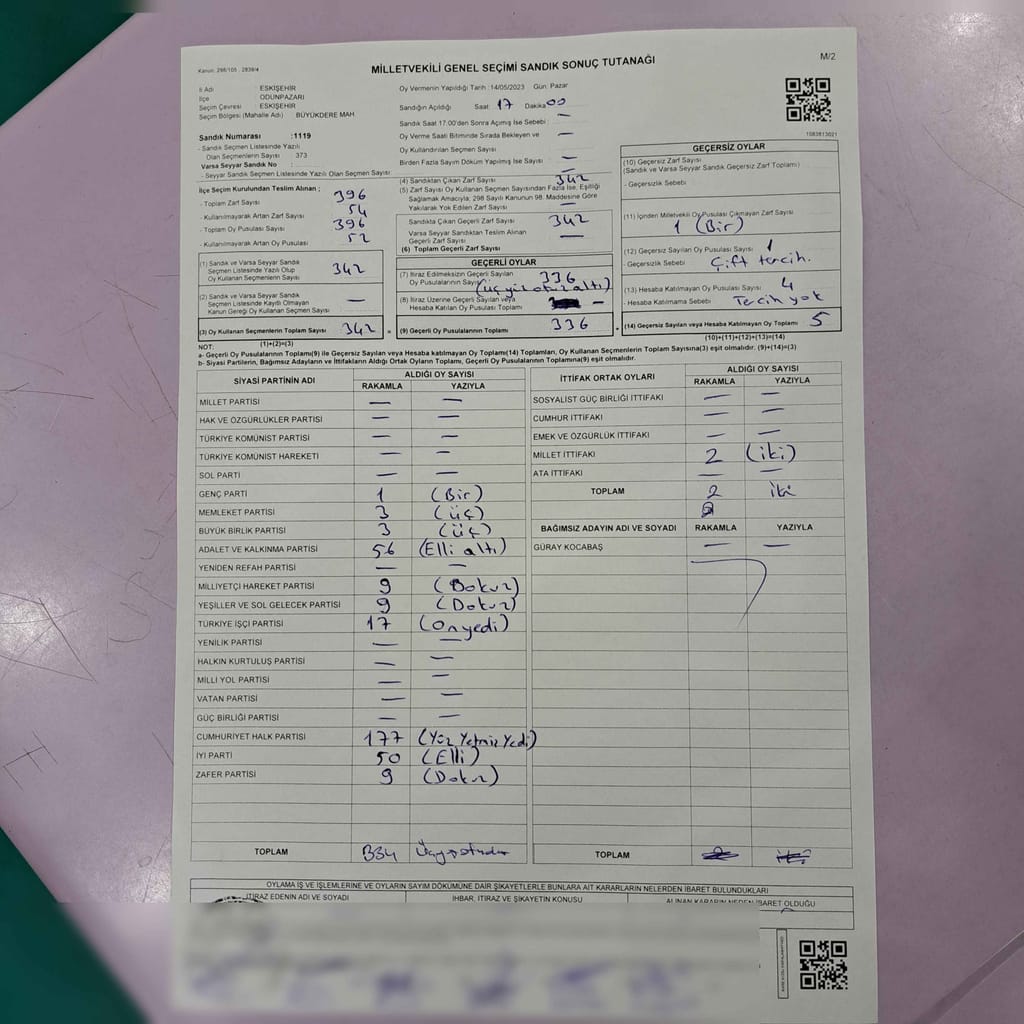 Kanun: 298/105 - 2839/4
MİLLETVEKİLİ GENEL SEÇİMİ SANDIK SONUÇ TUTANAĞI
M/2
İl Adı : ESKİŞEHİR
İlçe : ODUNPAZARI
Seçim Çevresi : ESKİŞEHİR
Seçim Bölgesi (Mahalle Adı) : BÜYÜKDERE MAH
Sandık Numarası : 1119
- Sandık Seçmen Listesinde Yazılı
Olan Seçmenlerin Sayısı : 373
Varsa Seyyar Sandık No :
- Seyyar Sandık Seçmen Listesinde Yazılı Olan Seçmen Sayısı :
Oy Vermenin Yapıldığı Tarih : 14/05/2023 Gün: Pazar
Sandığın Açıldığı Saat 17 Dakika 00
Sandık Saat 17:00'den Sonra Açılmış İse Sebebi : —
Oy Verme Saati Bitiminde Sırada Bekleyen ve —
Oy Kullandırılan Seçmen Sayısı
Birden Fazla Sayım Döküm Yapılmış İse Sayısı —
1083813021
İlçe Seçim Kurulundan Teslim Alınan ;
- Toplam Zarf Sayısı 396
- Kullanılmayarak Artan Zarf Sayısı 54
- Toplam Oy Pusulası Sayısı 396
- Kullanılmayarak Artan Oy Pusulası 52
(1) Sandık ve Varsa Seyyar Sandık
Seçmen Listesinde Yazılı Olup
Oy Kullanan Seçmenlerin Sayısı 342
(2) Sandık ve Varsa Seyyar Sandık
Seçmen Listesinde Kayıtlı Olmayan
Kanun Gereği Oy Kullanan Seçmen Sayısı —
(3) Oy Kullanan Seçmenlerin Toplam Sayısı 342
(1)+(2)=(3)
(4) Sandıktan Çıkan Zarf Sayısı 342
(5) Zarf Sayısı Oy Kullanan Seçmen Sayısından Fazla İse, Eşitliği
Sağlamak Amacıyla; 298 Sayılı Kanunun 98. Maddesine Göre
Yakılarak Yok Edilen Zarf Sayısı —
Sandıkta Çıkan Geçerli Zarf Sayısı 342
Varsa Seyyar Sandıktan Teslim Alınan
Geçerli Zarf Sayısı —
(6) Toplam Geçerli Zarf Sayısı
GEÇERLİ OYLAR
(7) İtiraz Edilmeksizin Geçerli Sayılan
Oy Pusulalarının Sayısı 336
(üç yüz otuz altı)
(8) İtiraz Üzerine Geçerli Sayılan veya
Hesaba Katılan Oy Pusulası Toplamı —
(9) Geçerli Oy Pusulalarının Toplamı 336
GEÇERSİZ OYLAR
(10) Geçersiz Zarf Sayısı
(Sandık ve Varsa Seyyar Sandık Geçersiz Zarf Toplamı)
- Geçersizlik Sebebi
(11) İçinden Milletvekili Oy Pusulası Çıkmayan Zarf Sayısı
1 (Bir)
(12) Geçersiz Sayılan Oy Pusulası Sayısı 1
- Geçersizlik Sebebi Çift tercih.
(13) Hesaba Katılmayan Oy Pusulası Sayısı 4
- Hesaba Katılmama Sebebi Tercih yok
(14) Geçersiz Sayılan veya Hesaba Katılmayan Oy Toplamı 5
(10)+(11)+(12)+(13)=(14)
NOT:
a- Geçerli Oy Pusulalarının Toplamı(9) ile Geçersiz Sayılan veya Hesaba katılmayan Oy Toplamı(14) Toplamları, Oy Kullanan Seçmenlerin Toplam Sayısına(3) eşit olmalıdır. (9)+(14)=(3)
b- Siyasi Partilerin, Bağımsız Adayların ve İttifakların Aldığı Ortak Oyların Toplamı, Geçerli Oy Pusulalarının Toplamına(9) eşit olmalıdır.
SİYASİ PARTİNİN ADI ALDIĞI OY SAYISI
RAKAMLA YAZIYLA
MİLLET PARTİSİ — —
HAK VE ÖZGÜRLÜKLER PARTİSİ — —
TÜRKİYE KOMÜNİST PARTİSİ — —
TÜRKİYE KOMÜNİST HAREKETİ — —
SOL PARTİ — —
GENÇ PARTİ 1 (Bir)
MEMLEKET PARTİSİ 3 (üç)
BÜYÜK BİRLİK PARTİSİ 3 (üç)
ADALET VE KALKINMA PARTİSİ 56 (Elli altı)
YENİDEN REFAH PARTİSİ — —
MİLLİYETÇİ HAREKET PARTİSİ 9 (Dokuz)
YEŞİLLER VE SOL GELECEK PARTİSİ 9 (Dokuz)
TÜRKİYE İŞÇİ PARTİSİ 17 (Onyedi)
YENİLİK PARTİSİ — —
HALKIN KURTULUŞ PARTİSİ — —
MİLLİ YOL PARTİSİ — —
VATAN PARTİSİ — —
GÜÇ BİRLİĞİ PARTİSİ — —
CUMHURİYET HALK PARTİSİ 177 (Yüz Yetmiş Yedi)
İYİ PARTİ 50 (Elli)
ZAFER PARTİSİ 9 (Dokuz)
TOPLAM 334
İTTİFAK ORTAK OYLARI ALDIĞI OY SAYISI
RAKAMLA YAZIYLA
SOSYALİST GÜÇ BİRLİĞİ İTTİFAKI — —
CUMHUR İTTİFAKI — —
EMEK VE ÖZGÜRLÜK İTTİFAKI — —
MİLLET İTTİFAKI 2 (iki)
ATA İTTİFAKI — —
TOPLAM 2 iki
BAĞIMSIZ ADAYIN ADI VE SOYADI RAKAMLA YAZIYLA
GÜRAY KOCABAŞ — —
TOPLAM
OYLAMA İŞ VE İŞLEMLERİNE VE OYLARIN SAYIM DÖKÜMÜNE DAİR ŞİKAYETLERLE BUNLARA AİT KARARLARIN NELERDEN İBARET BULUNDUKLARI
İTİRAZ EDENİN ADI VE SOYADI İHBAR, İTİRAZ VE ŞİKAYETİN KONUSU ALINAN KARARIN NEDEN İBARET OLDUĞU